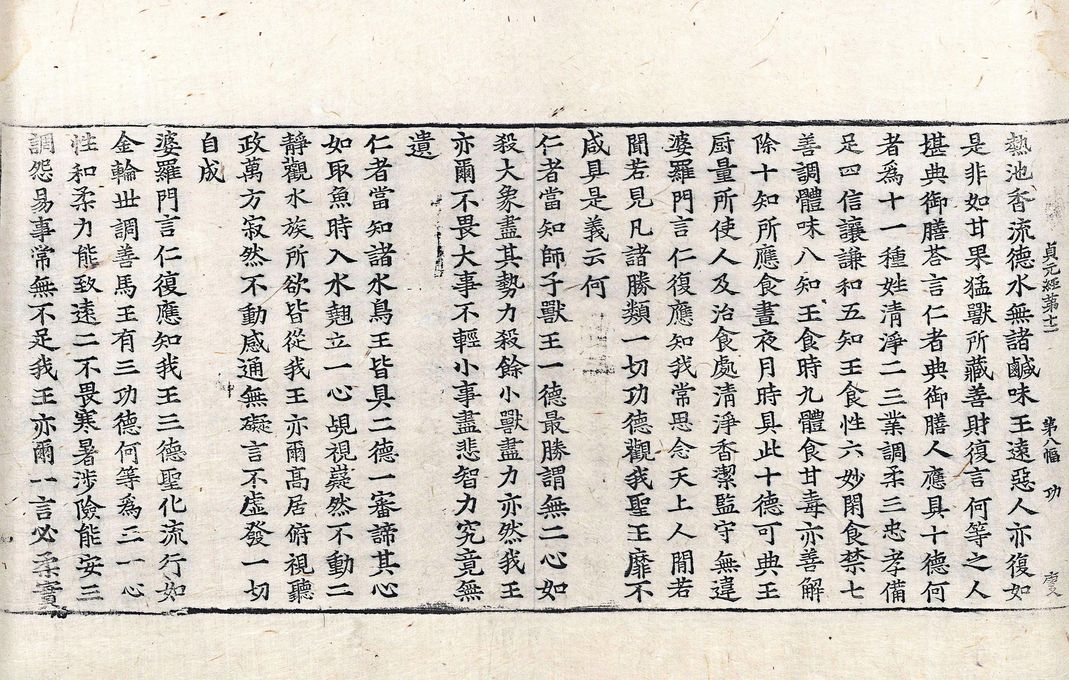 貞元經第十二 第八幅 功
熱池香流德水無諸鹹味王遠惡人亦復如
是非如甘果猛獸所藏善財復言何等之人
堪典御膳荅言仁者典御膳人應具十德何
者爲十一種姓清淨二三業調柔三忠孝備
足四信讓謙和五知王食性六妙閑食禁七
善調體味八知王食時九體食甘毒亦善解
除十知所應食晝夜月時具此十德可典王
厨量所使人及治食處清淨香潔監守無違
婆羅門言仁復應知我常思念天上人閒若
聞若見凡諸勝類一切功德觀我聖王靡不
咸具是義云何
仁者當知師子獸王一德最勝謂無二心如
殺大象盡其勢力殺餘小獸盡力亦然我王
亦爾不畏大事不輕小事盡悲智力究竟無
遺
仁者當知諸水鳥王皆具二德一審諦其心
如取魚時入水翹立一心覘視嶷然不動二
靜觀水族所欲皆從我王亦爾高居俯視聽
政萬方寂然不動感通無礙言不虛發一切
自成
婆羅門言仁復應知我王三德聖化流行如
金輪世調善馬王有三功德何等爲三一心
性和柔力能致遠二不畏寒暑涉險能安三
調怨易事常無不足我王亦爾一言必柔實